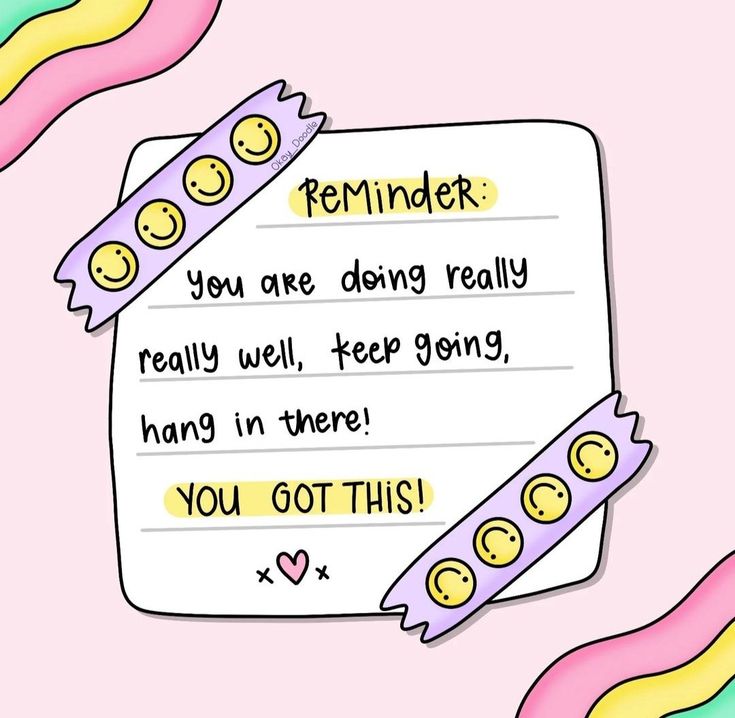 Okay_Doodle
Reminder:
You are doing really
really well, keep going,
hang in there!
YOU GOT THIS!
x x